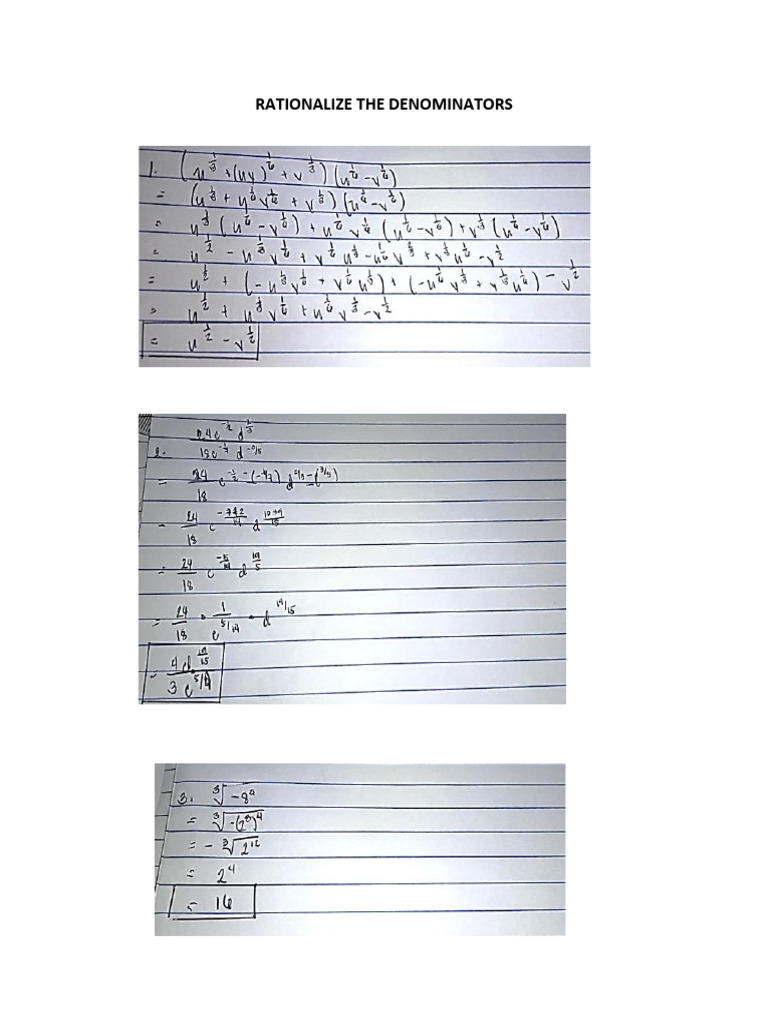 RATIONALIZE THE DENOMINATORS
1. (u^1/3 + (uv)^1/6 + v^1/3) (u^1/6 - v^1/6)
= (u^1/3 + u^1/6 v^1/6 + v^1/3) (u^1/6 - v^1/6)
= u^1/3 (u^1/6 - v^1/6) + u^1/6 v^1/6 (u^1/6 - v^1/6) + v^1/3 (u^1/6 - v^1/6)
= u^1/2 - u^1/3 v^1/6 + v^1/6 u^1/3 - u^1/6 v^1/3 + v^1/3 u^1/6 - v^1/2
= u^1/2 + (-u^1/3 v^1/6 + v^1/6 u^1/3) + (-u^1/6 v^1/3 + v^1/3 u^1/6) - v^1/2
= u^1/2 + u^1/3 v^1/6 + u^1/6 v^1/3 - v^1/2
= u^1/2 - v^1/2
2.
= 24/18
= 24/18
= 24/18
= 24/18 • 1/c^5/14 • d^19/15
= 4d^19/15 / 3c^5/14
3. ∛-8^4
= ∛-(2^3)^4
= - ∛2^12
= 2^4
= 16